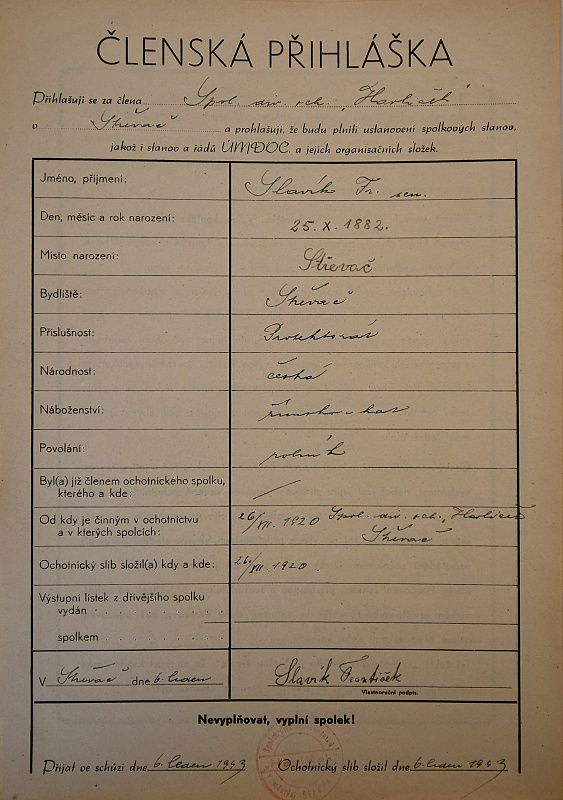 ČLENSKÁ PŘIHLÁŠKA
Přihlašuji se za člena Spol. div. och. „Havlíček“
v Střevač a prohlašuji, že budu plniti ustanovení spolkových stanov,
jakož i stanov a řádů ÚMDOČ. a jejich organisačních složek.
Jméno, příjmení: Slavík Fr. sen.
Den, měsíc a rok narození: 25. X. 1882.
Místo narození: Střevač
Bydliště: Střevač
Příslušnost: Protektorát
Národnost: česká
Náboženství: římsko-kat
Povolání: rolník
Byl(a) již členem ochotnického spolku,
kterého a kde: /
Od kdy je činným v ochotnictvu 26/VII. 1920 Spol. div. och. „Havlíček
a v kterých spolcích: Střevač
Ochotnický slib složil(a) kdy a kde: 26/VII. 1920.
Výstupní lístek z dřívějšího spolku
vydán . . . . . . . . .
spolkem . . . . . . . . .
V Střevač dne 6. leden Slavík František
Vlastnoruční podpis.
Nevyplňovat, vyplní spolek!
Přijat ve schůzi dne 6. leden 1943 Ochotnický slib složil dne 6. leden 1943